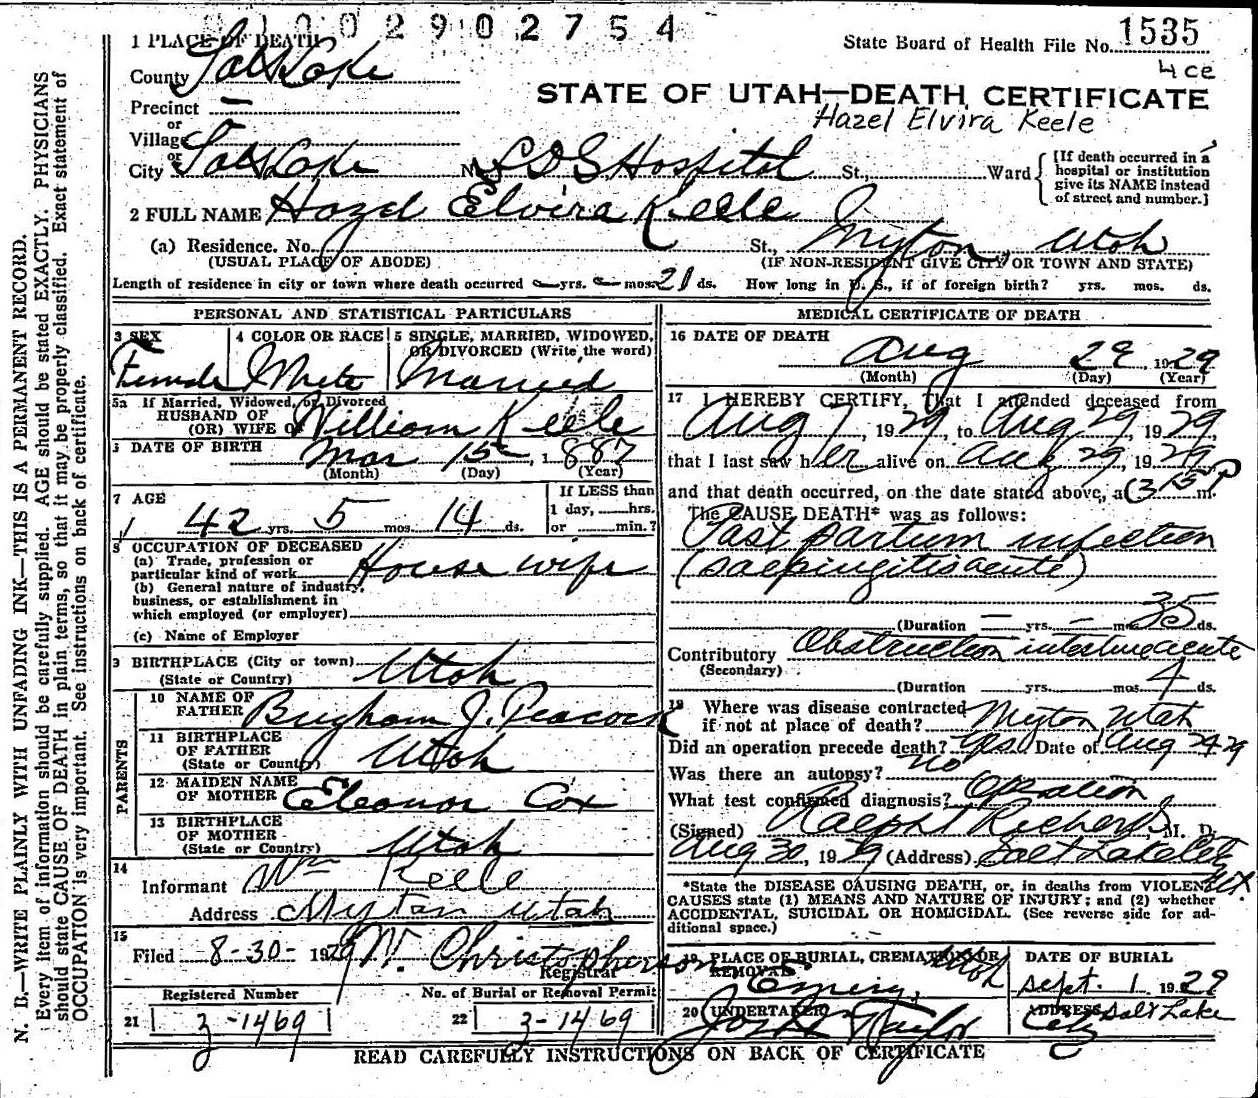 2902754
State Board of Health File No. 1535
4 ce
STATE OF UTAH—DEATH CERTIFICATE
Hazel Elvira Keele
1 PLACE OF DEATH
County Salt Lake
Precinct —
or
Village —
or
City Salt Lake No. LDS Hospital St., Ward
[If death occurred in a hospital or institution give its NAME instead of street and number.]
2 FULL NAME Hazel Elvira Keele
(a) Residence. No. St., Myton, Utah
(USUAL PLACE OF ABODE) (IF NON-RESIDENT GIVE CITY OR TOWN AND STATE)
Length of residence in city or town where death occurred — yrs. — mos. 21 ds. How long in U. S., if of foreign birth? yrs. mos. ds.
PERSONAL AND STATISTICAL PARTICULARS
3 SEX
Female
4 COLOR OR RACE
White
5 SINGLE, MARRIED, WIDOWED, OR DIVORCED (Write the word)
Married
5a If Married, Widowed, or Divorced
HUSBAND OF
(OR) WIFE OF William Keele
DATE OF BIRTH Mar 15, 1887
(Month) (Day) (Year)
7 AGE
42 yrs. 5 mos. 14 ds.
If LESS than
1 day, hrs.
or min.?
8 OCCUPATION OF DECEASED
(a) Trade, profession or
particular kind of work House wife
(b) General nature of industry,
business, or establishment in
which employed (or employer)
(c) Name of Employer
9 BIRTHPLACE (City or town)
(State or Country) Utah
PARENTS
10 NAME OF
FATHER Brigham J. Peacock
11 BIRTHPLACE
OF FATHER
(State or Country) Utah
12 MAIDEN NAME
OF MOTHER Eleanor Cox
13 BIRTHPLACE
OF MOTHER
(State or Country) Utah
14
Informant Wm Keele
Address Myton Utah
15
Filed 8-30-1929 W. Christopherson
Registrar
Registered Number
21 3-1469
No. of Burial or Removal Permit
22 3-1469
MEDICAL CERTIFICATE OF DEATH
16 DATE OF DEATH
Aug 29 1929
(Month) (Day) (Year)
17 I HEREBY CERTIFY, That I attended deceased from
Aug 7, 1929, to Aug 29, 1929,
that I last saw her alive on Aug 29, 1929,
and that death occurred, on the date stated above, at 315 P m.
The CAUSE DEATH* was as follows:
Post partum infection
(salpingitis acute)
(Duration — yrs. — mos. 35 ds.
Contributory Obstruction intestine acute
(Secondary)
(Duration yrs. mos. 4 ds.
18 Where was disease contracted
if not at place of death? Myton Utah
Did an operation precede death? Yes. Date of Aug 24 29
Was there an autopsy? no
What test confirmed diagnosis? Operation
(Signed) Ralph T Richards, M. D.
Aug 30, 1929 (Address) Salt Lake City Ut.
*State the DISEASE CAUSING DEATH, or, in deaths from VIOLENT
CAUSES state (1) MEANS AND NATURE OF INJURY; and (2) whether
ACCIDENTAL, SUICIDAL OR HOMICIDAL. (See reverse side for ad-
ditional space.)
19 PLACE OF BURIAL, CREMATION OR
REMOVAL
Emery, Utah
DATE OF BURIAL
Sept. 1 1929
20 UNDERTAKER
Jos Taylor
ADDRESS Salt Lake
City
READ CAREFULLY INSTRUCTIONS ON BACK OF CERTIFICATE
N. B.—WRITE PLAINLY WITH UNFADING INK—THIS IS A PERMANENT RECORD.
Every item of information should be carefully supplied. AGE should be stated EXACTLY. PHYSICIANS
should state CAUSE OF DEATH in plain terms, so that it may be properly classified. Exact statement of
OCCUPATION is very important. See instructions on back of certificate.